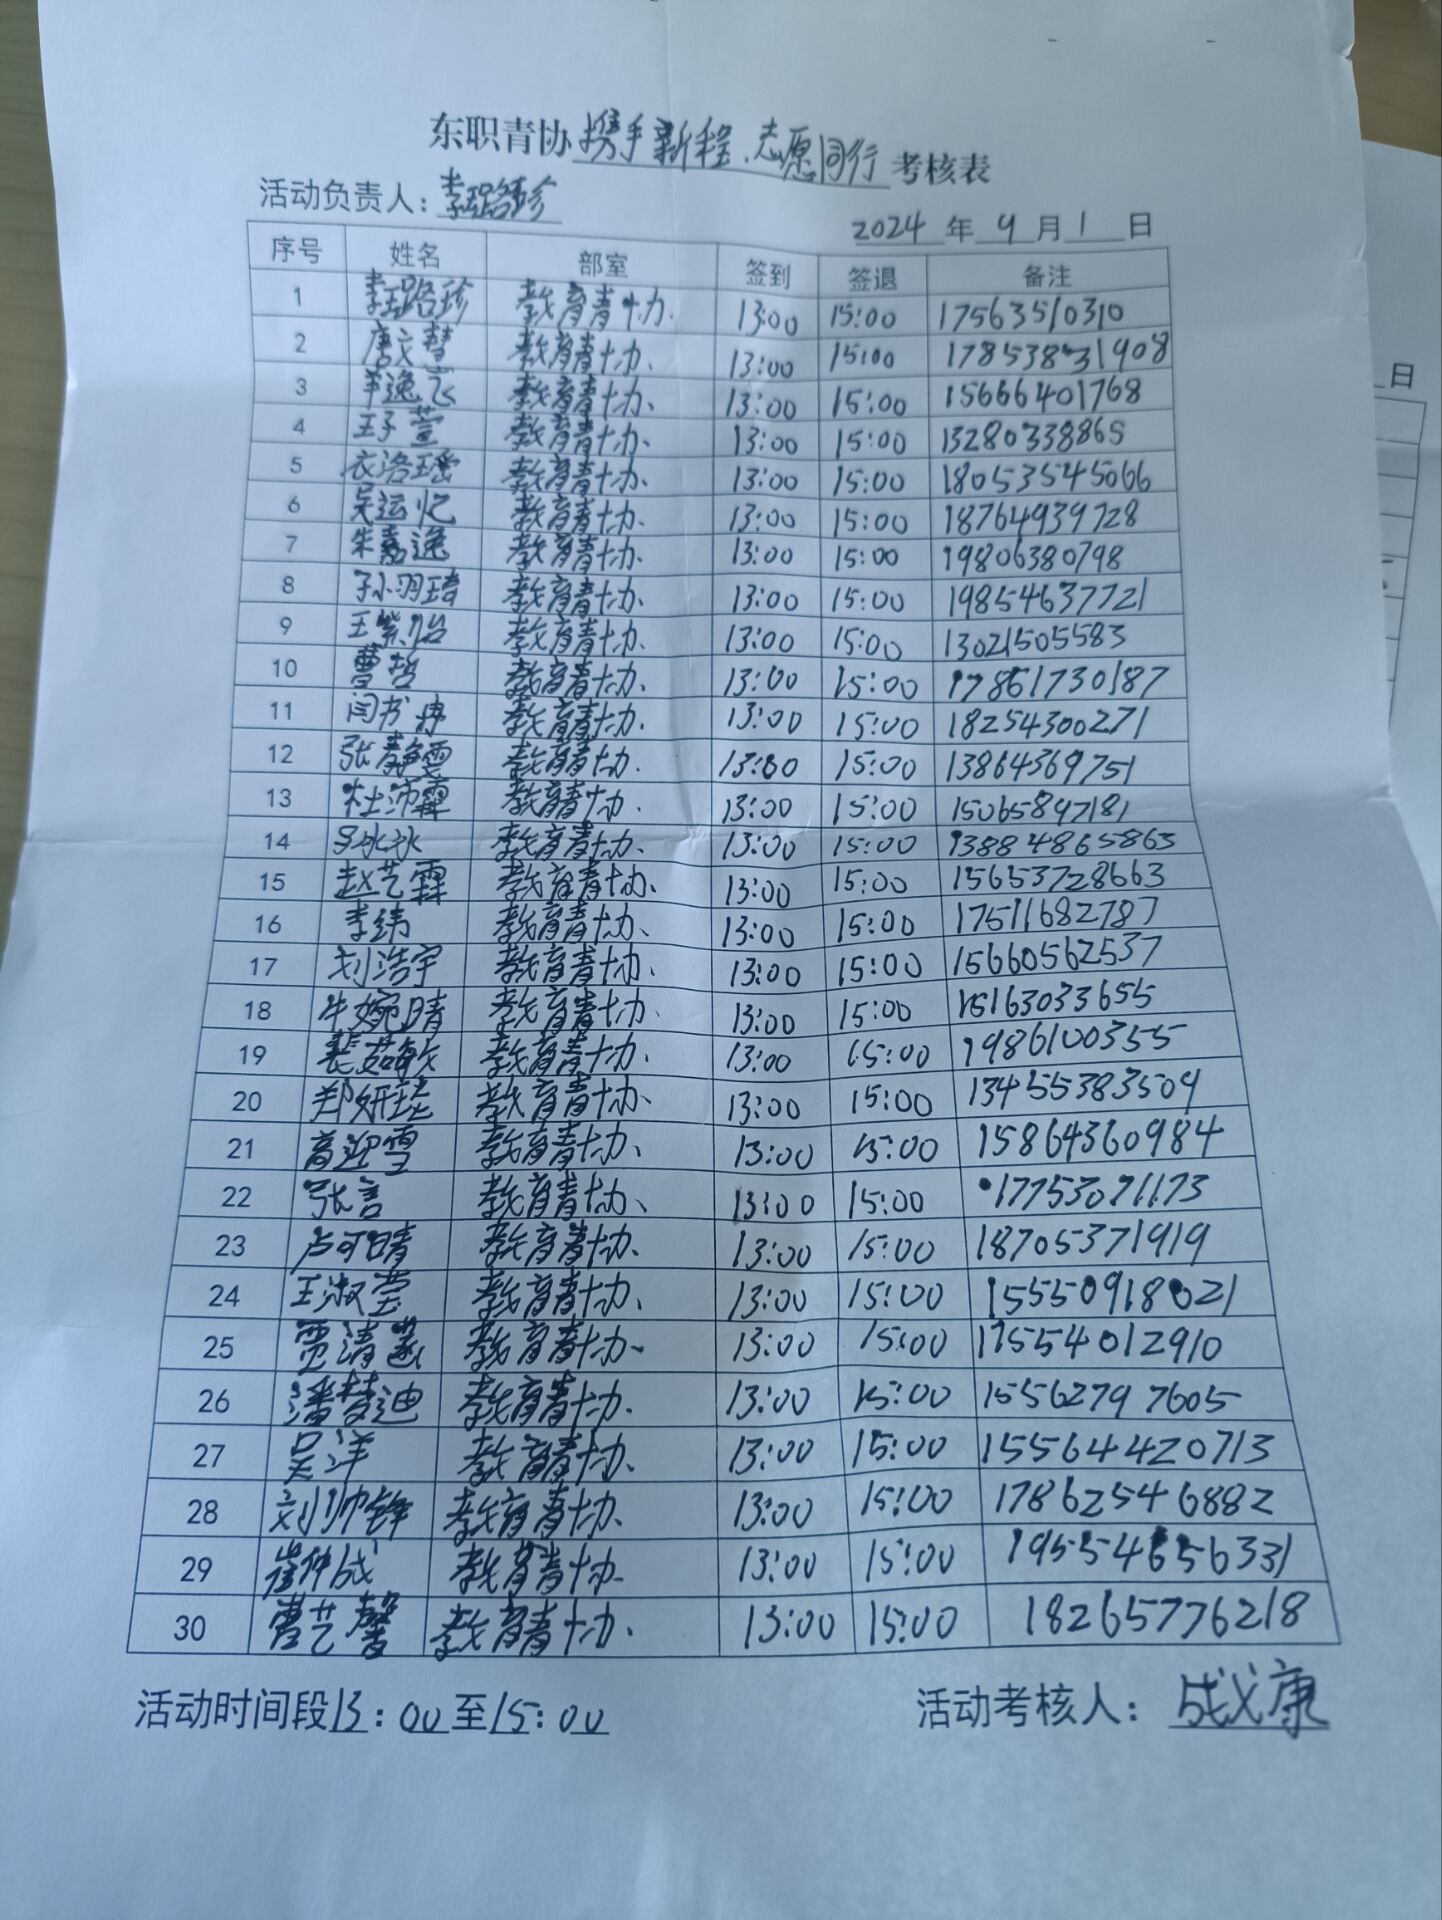 东职青协携手新程、志愿同行考核表
活动负责人:李璐珍
2024年9月1日
序号 姓名 部室 签到 签退 备注
1 李璐珍 教育青协. 13:00 15:00 17563510310
2 唐文慧 教育青协、 13:00 15:00 17853831908
3 羊逸飞 教育青协、 13:00 15:00 15666401768
4 王子萱 教育青协、 13:00 15:00 13280338865
5 衣洛瑶 教育青协、 13:00 15:00 18053545066
6 吴运忆 教育青协、 13:00 15:00 18764939728
7 朱嘉逸 教育青协、 13:00 15:00 19806380798
8 孙羽琦 教育青协、 13:00 15:00 19854637721
9 王紫怡 教育青协、 13:00 15:00 13021505583
10 曹哲 教育青协、 13:00 15:00 17861730187
11 闫书冉 教育青协、 13:00 15:00 18254300271
12 张静雯 教育青协. 13:00 15:00 13864369751
13 杜沛霖 教育青协. 13:00 15:00 15065897181
14 冰冰 教育青协、 13:00 15:00
15 赵艺霖 教育青协、 13:00 15:00 15653728663
16 李纬 教育青协、 13:00 15:00 17511682787
17 刘浩宇 教育青协、 13:00 15:00 15660562537
18 牛婉晴 教育青协、 13:00 15:00 15163033655
19 裴茹敏 教育青协、 13:00 15:00 19861100355
20 郑妍琰 教育青协、 13:00 15:00 13455383509
21 高迎雪 教育青协、 13:00 15:00 15864360984
22 张言 教育青协、 13:00 15:00 17753071173
23 卢可晴 教育青协、 13:00 15:00 18705371919
24 王淑莹 教育青协、 13:00 15:00 15550918021
25 贾清菡 教育青协、 13:00 15:00 17554012910
26 潘梦迪 教育青协、 13:00 15:00 15562797605
27 吴洋 教育青协、 13:00 15:00 15564420713
28 刘帅锋 教育青协、 13:00 15:00 17862546882
29 崔仲成 教育青协、 13:00 15:00
30 曹艺馨 教育青协、 13:00 15:00 18265776218
活动时间段13:00至15:00
活动考核人:成戈康
日